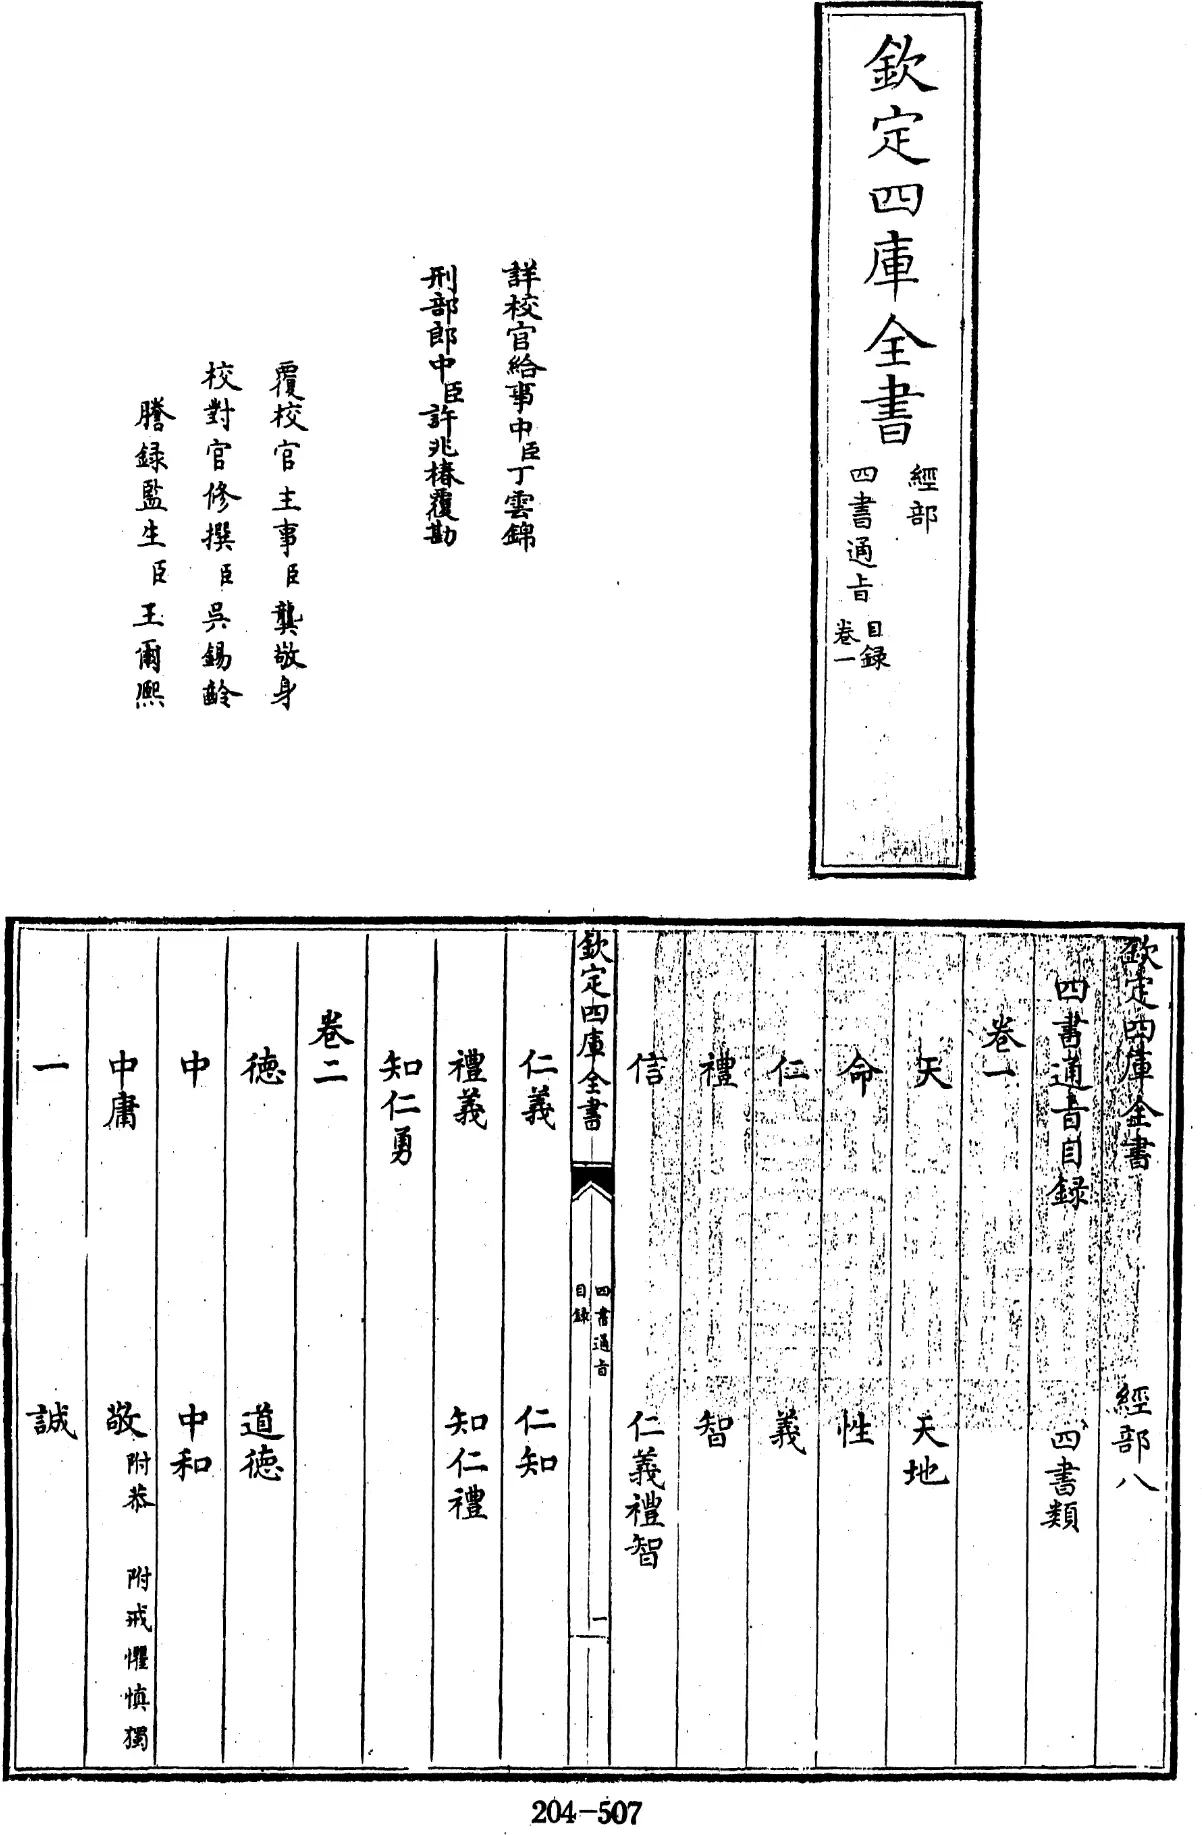 欽定四庫全書
經部
四書通旨
目録
卷一
詳校官給事中臣丁雲錦
刑部郎中臣許兆椿覆勘
覆校官主事臣龔敬身
校對官修撰臣吳錫齡
謄録監生臣王爾熙
欽定四庫全書 經部八
四書通旨目録 四書類
卷一
天 天地
命 性
仁 義
禮 智
信 仁義禮智
欽定四庫全書
四書通旨
目録
一
仁義 仁知
禮義 知仁禮
知仁勇
卷二
德 道德
中 中和
中庸 敬 附恭 附戒懼慎獨
一 誠
204-507